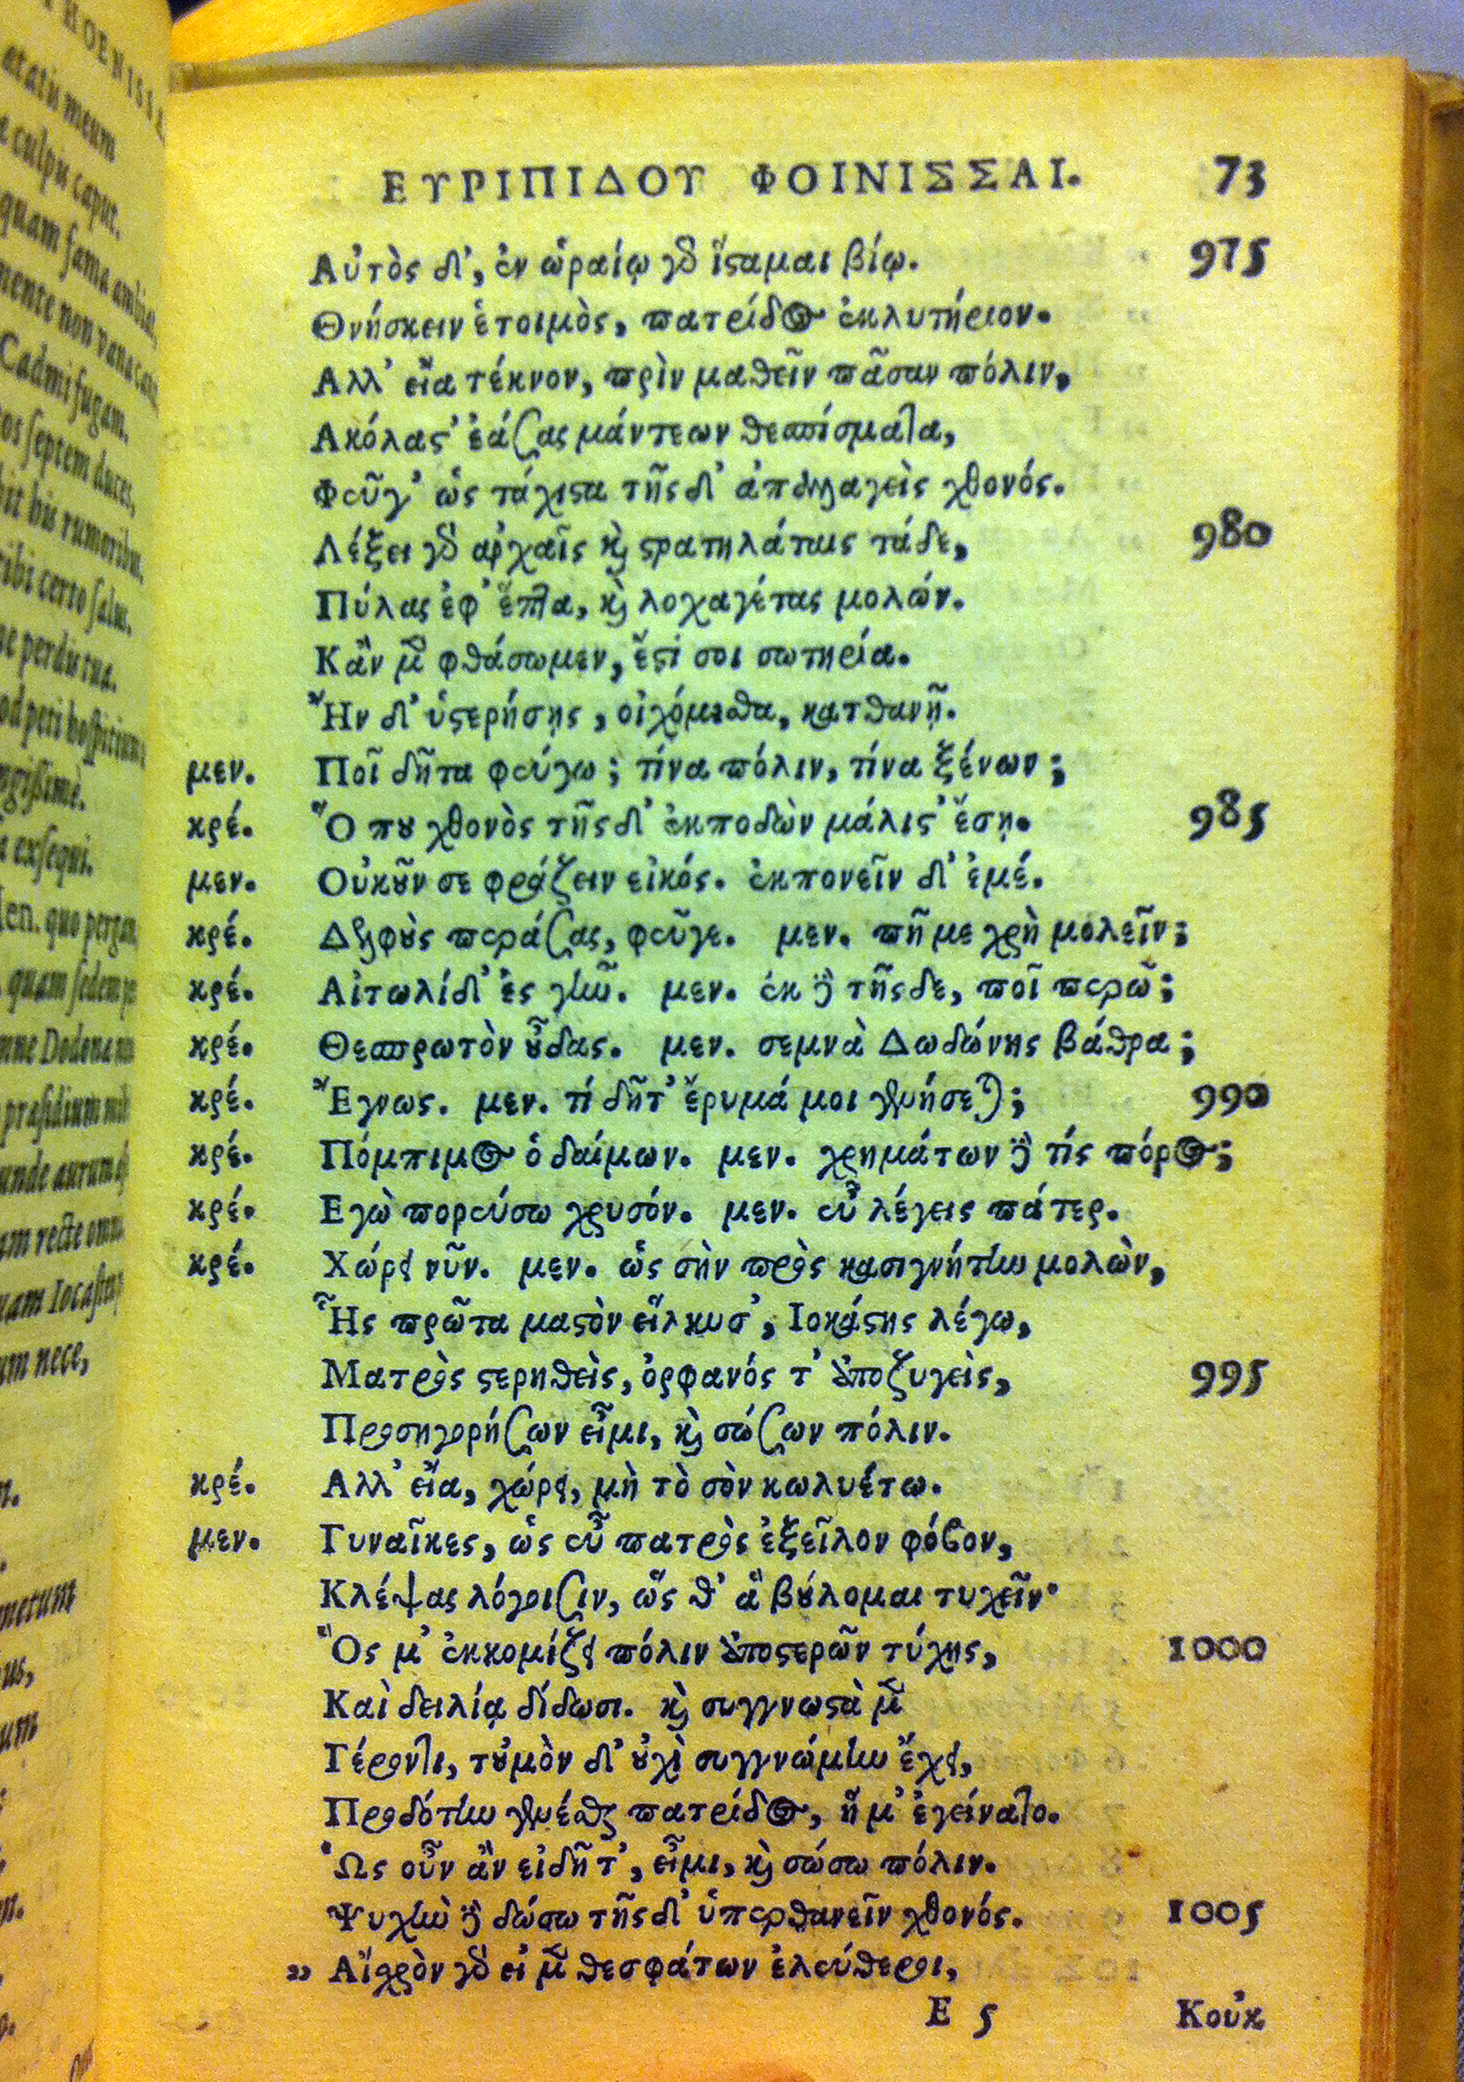 ΕΥΡΙΠΙΔΟΥ ΦΟΙΝΙΣΣΑΙ. 73
Αὐτὸς δ', ἐν ὡραίῳ γδ ἵσταμαι βίῳ. 975
Θνήσκειν ἑτοιμὸς, πατρίδος ἐκλυτήριον.
Αλλ' εἶα τέκνον, πρὶν μαθεῖν πᾶσαν πόλιν,
Ακόλαστ' ἐάσας μάντεων θεσπίσματα,
Φεῦγ' ὡς τάχιστα τῆςδ' ἀπαλλαγεὶς χθονός.
Λέξει γδ ἀρχαῖς καὶ στρατηλάταις τάδε, 980
Πύλας ἐφ' ἑπτὰ, καὶ λοχαγέτας μολών.
Κἂν μὲν φθάσωμεν, ἔστι σοι σωτηρία.
Ἢν δ' ὑστερήσῃς, οἰχόμεσθα, κατθανῇ.
μεν. Ποῖ δῆτα φεύγω; τίνα πόλιν, τίνα ξένων;
κρέ. Ὅπου χθονὸς τῆςδ' ἐκποδὼν μάλιστ' ἔσῃ. 985
μεν. Οὐκοῦν σε φράζειν εἰκός. ἐκπονεῖν δ' ἐμέ.
κρέ. Δελφοὺς περάσας, φεῦγε. μεν. πῆ με χρὴ μολεῖν;
κρέ. Αἰτωλίδ' ἐς γῆν. μεν. ἐκ δὲ τῆςδε, ποῖ περῶ;
κρέ. Θεσπρωτὸν οὖδας. μεν. σεμνὰ Δωδώνης βάθρα;
κρέ. Ἔγνως. μεν. τί δῆτ' ἔρυμά μοι γενήσεται; 990
κρέ. Πόμπιμος ὁ δαίμων. μεν. χρημάτων δὲ τίς πόρος;
κρέ. Εγὼ πορεύσω χρυσόν. μεν. εὖ λέγεις πάτερ.
κρέ. Χώρει νῦν. μεν. ὡς σὴν πρὸς κασιγνήτην μολὼν,
Ἧς πρῶτα μαστὸν εἵλκυσ', Ιοκάστης λέγω,
Ματρὸς στερηθεὶς, ὀρφανός τ' ἀποζυγεὶς, 995
Προσηγορήσων εἶμι, καὶ σώσων πόλιν.
κρέ. Αλλ' εἶα, χώρει, μὴ τὸ σὸν κωλυέτω.
μεν. Γυναῖκες, ὡς εὖ πατρὸς ἐξεῖλον φόβον,
Κλέψας λόγοισιν, ὥς θ' ἃ βούλομαι τυχεῖν·
Ὅς μ' ἐκκομίζει πόλιν ἀποστερῶν τύχης, 1000
Καὶ δειλίᾳ δίδωσι. καὶ συγγνωστὰ μὲν
Γέροντι, τοὐμὸν δ' οὐχὶ συγγνώμην ἔχει,
Προδότην γενέσθαι πατρίδος, ἥ μ' ἐγείνατο.
Ὡς οὖν ἂν εἰδῆτ', εἶμι, καὶ σώσω πόλιν.
Ψυχὴν δὲ δώσω τῆςδ' ὑπερθανεῖν χθονός. 1005
„ Αἰσχρὸν γδ εἰ μὲν θεσφάτων ἐλεύθεροι,
Ε 5 Κοὐκ